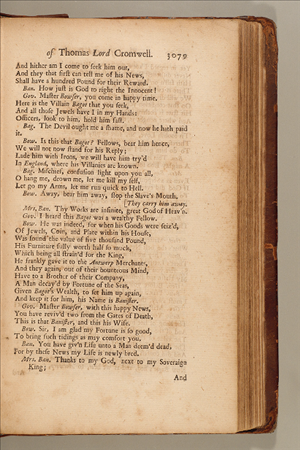 of Thomas Lord Cromwell. 3079
And hither am I come to seek him out,
And they that first can tell me of his News,
Shall have a hundred Pound for their Reward.
Ban. How just is God to right the Innocent!
Gov. Master Bowser, you come in happy time.
Here is the Villain Bagot that you seek,
And all those Jewels have I in my Hands:
Officers, look to him, hold him fast.
Bag. The Devil ought me a shame, and now he hath paid
it.
Bow. Is this that Bagot? Fellows, bear him hence,
We will not now stand for his Reply;
Lade him with Irons, we will have him try'd
In England, where his Villanies are known.
Bag. Mischief, confusion light upon you all,
O hang me, drown me, let me kill my self,
Let go my Arms, let me run quick to Hell.
Bow. Away, bear him away, stop the Slave's Mouth.
[They carry him away.
Mrs. Ban. Thy Works are infinite, great God of Heav'n.
Gov. I heard this Bagot was a wealthy Fellow.
Bow. He was indeed, for when his Goods were seiz'd,
Of Jewels, Coin, and Plate within his House,
Was found the value of five thousand Pound,
His Furniture fully worth half so much,
Which being all strain'd for the King,
He frankly gave it to the Antwerp Merchants,
And they again, out of their bounteous Mind,
Have to a Brother of their Company,
A Man decay'd by Fortune of the Seas,
Given Bagot's Wealth, to set him up again,
And keep it for him, his Name is Banister.
Gov. Master Bowser, with this happy News,
You have reviv'd two from the Gates of Death,
This is that Banister, and this his Wife.
Bow. Sir, I am glad my Fortune is so good,
To bring such tidings as may comfort you.
Ban. You have giv'n Life unto a Man deem'd dead,
For by these News my Life is newly bred.
Mrs. Ban. Thanks to my God, next to my Soveraign
King;
And